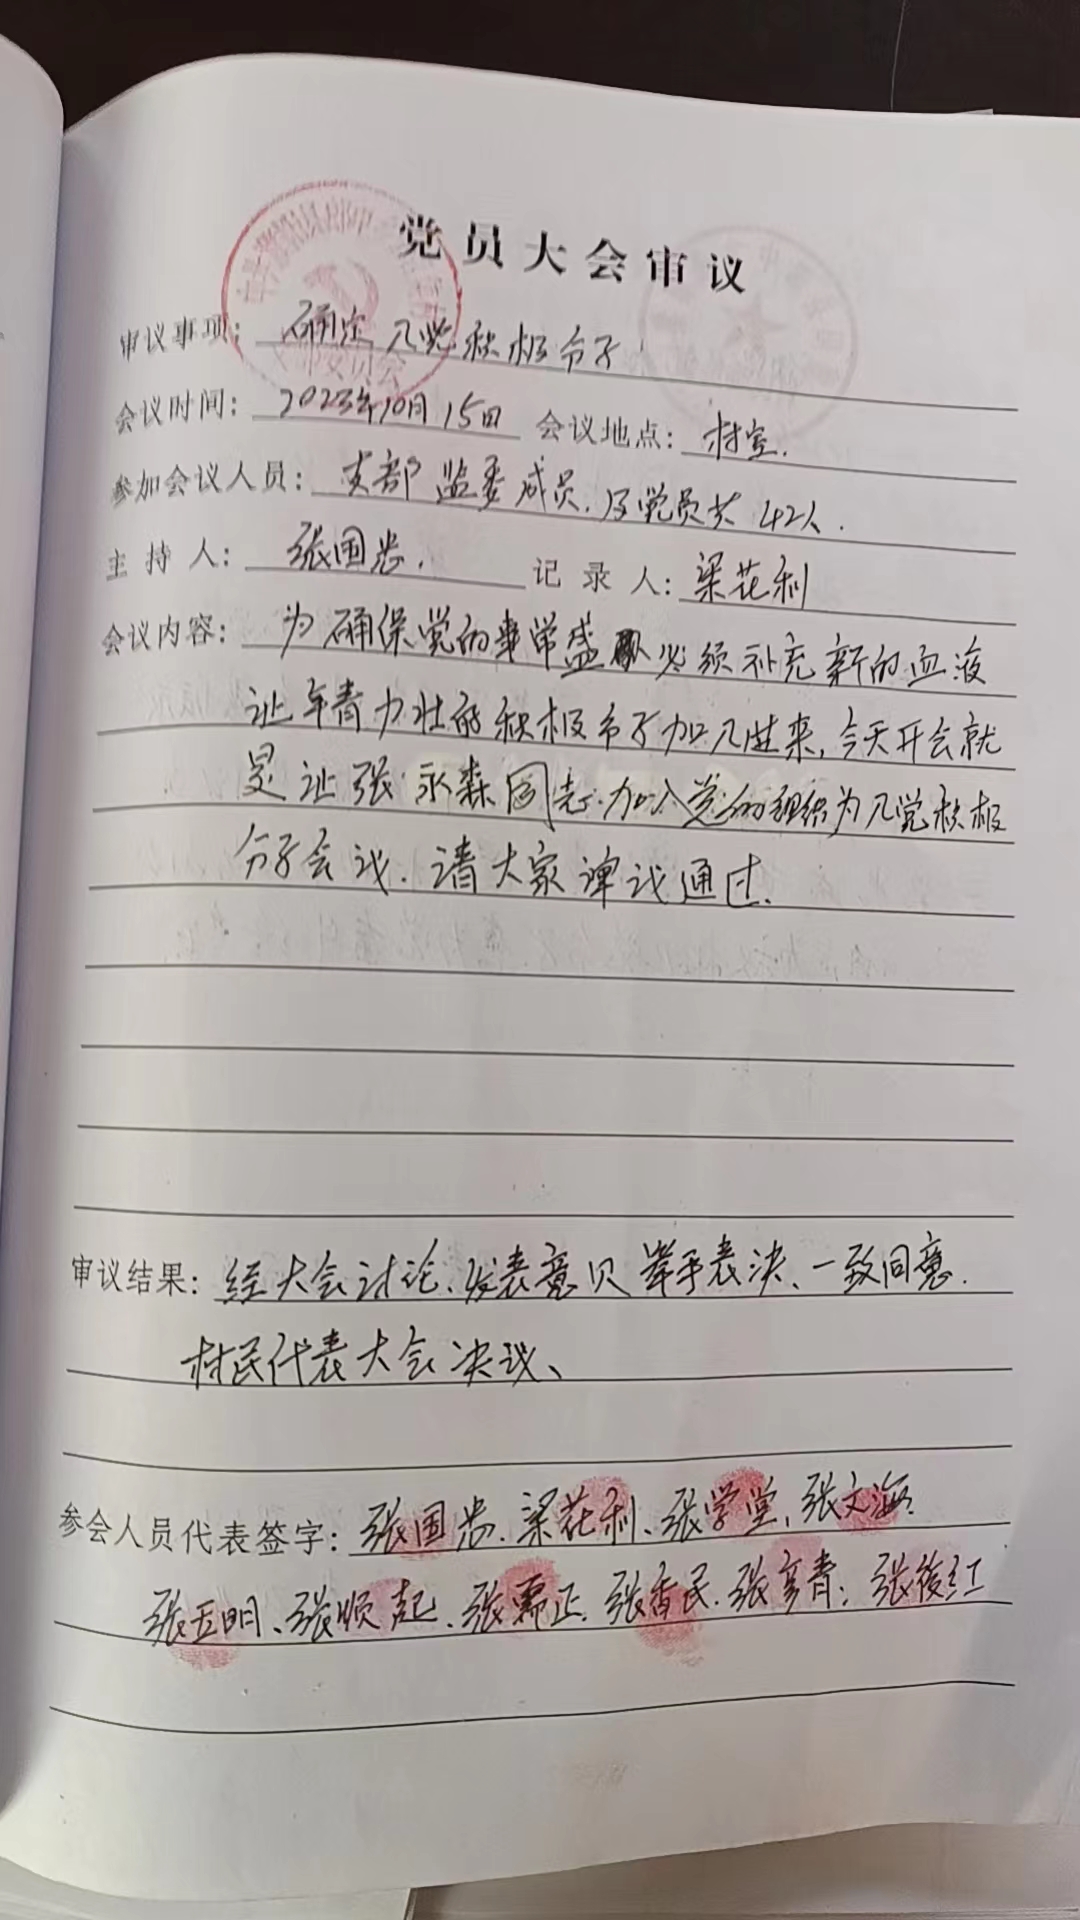 党员大会审议
审议事项：确定入党积极分子
会议时间：2023年10月15日 会议地点：村室.
参加会议人员：支部监委成员.及党员共42人.
主持人：张国忠. 记录人：梁花利
会议内容：为确保党的事常盛 必须补充新的血液
让年青力壮的积极分子加入进来,今天开会就
是让张永森同志.加入党的组织为入党积极
分子会议.请大家评议通过.
审议结果：经大会讨论、发表意见举手表决、一致同意.
村民代表大会决议、
参会人员代表签字：张国忠.梁花利、张学堂,张文海.
张五明、张顺起、张 正.张香民.张 青;张俊红